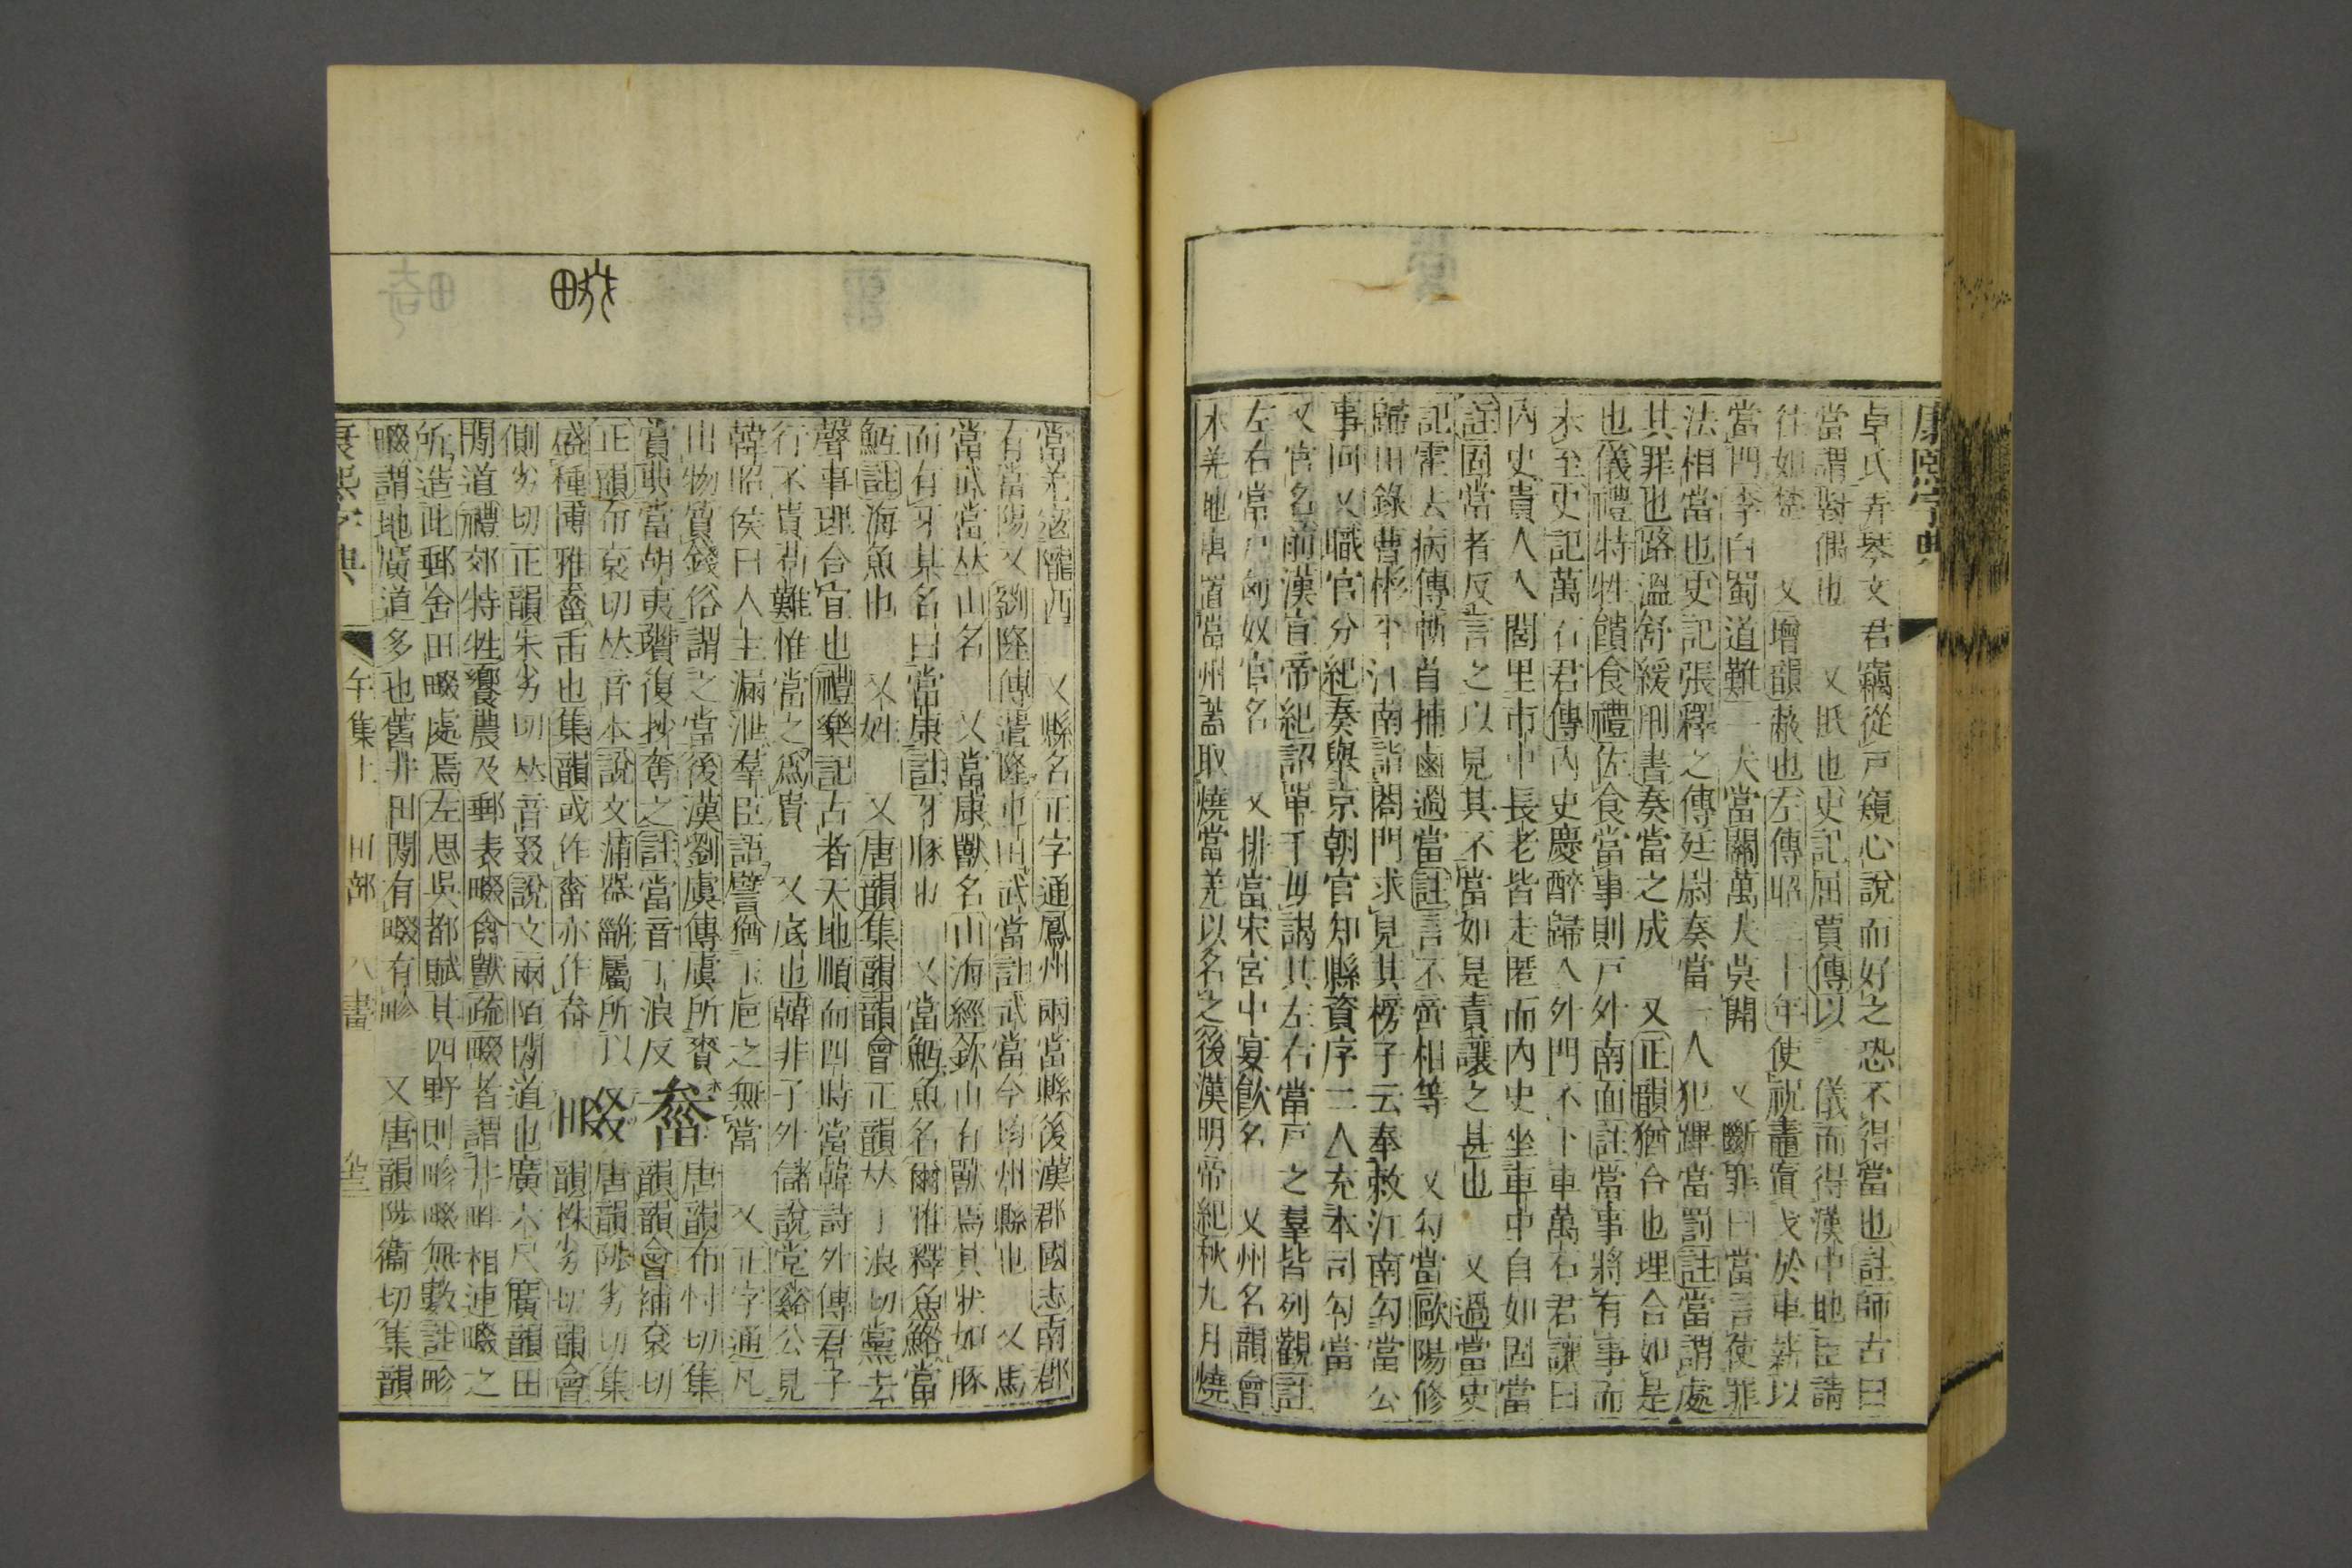 康熙字典
卓氏弄琴文君竊從戸窺心說而好之恐不得當也註師古曰
當謂對偶也 又抵也史記屈賈傳以 儀而得漢中地臣請
往如楚 又增韻蔽也左傳昭二十年使祝鼃寘戈於車薪以
當門李白蜀道難一夫當關萬夫莫開 又斷罪曰當言使罪
法相當也史記張釋之傳廷尉奏當一人犯蹕當罰註當謂處
其罪也路溫舒緩刑書奏當之成 又正韻猶合也理合如是
也儀禮特牲饋食禮佐食當事則戸外南面註當事將有事而
未至史記萬石君傳內史慶醉歸入外門不下車萬石君讓曰
內史貴人入閭里市中長老皆走匿而內史坐車中自如固當
註固當者反言之以見其不當如是責讓之甚也 又過當史
記霍去病傳斬首捕鹵過當註言不啻相等 又勾當歐陽修
歸田錄曹彬平江南詣閤門求見其榜子云奉敕江南勾當公
事回又職官分紀奏與京朝官知縣資序二人充本司勾當
又官名前漢宣帝紀詔單于毋謁其左右當戸之羣皆列觀註
左右當戸匈奴官名 又排當宋宮中宴飮名 又州名韻會
本羌地唐置當州蓋取燒當羌以名之後漢明帝紀秋九月燒
當羌寇隴西 又縣名正字通鳳州兩當縣後漢郡國志南郡
有當陽又劉隆傳遣隆屯田武當註武當今均州縣也 又馬
當武當丛山名 又當康獸名山海經欽山有獸焉其狀如豚
而有牙其名曰當康註牙豚也 又當魱魚名爾雅釋魚鯦當
魱註海魚也 又姓 又唐韻集韻韻會正韻丛丁浪切黨去
聲事理合宜也禮樂記古者天地順而四時當韓詩外傳君子
行不貴苟難惟當之爲貴 又底也韓非子外儲說堂谿公見
韓昭侯曰人主漏泄羣臣語譬猶玉巵之無當 又正字通凡
出物質錢俗謂之當後漢劉虞傳虞所賚
賞典當胡夷瓚復抄奪之註當音丁浪反
畚 唐韻布忖切集
韻韻會補袞切
正韻布袞切丛音本說文蒲器𤮅屬所以
盛種博雅畚臿也集韻或作𤲏亦作㚏
畷 唐韻陟劣切集
韻株劣切韻會
側劣切正韻朱劣切丛音叕說文兩陌閒道也廣六尺廣韻田
閒道禮郊特牲饗農及郵表畷禽獸疏畷者謂井畔相連畷之
所造此郵舍田畷處焉左思吳都賦其四野則畛畷無數註畛
畷謂地廣道多也舊井田閒有畷有畛 又唐韻陟衞切集韻
康熙字典 午集上 田部 八畫